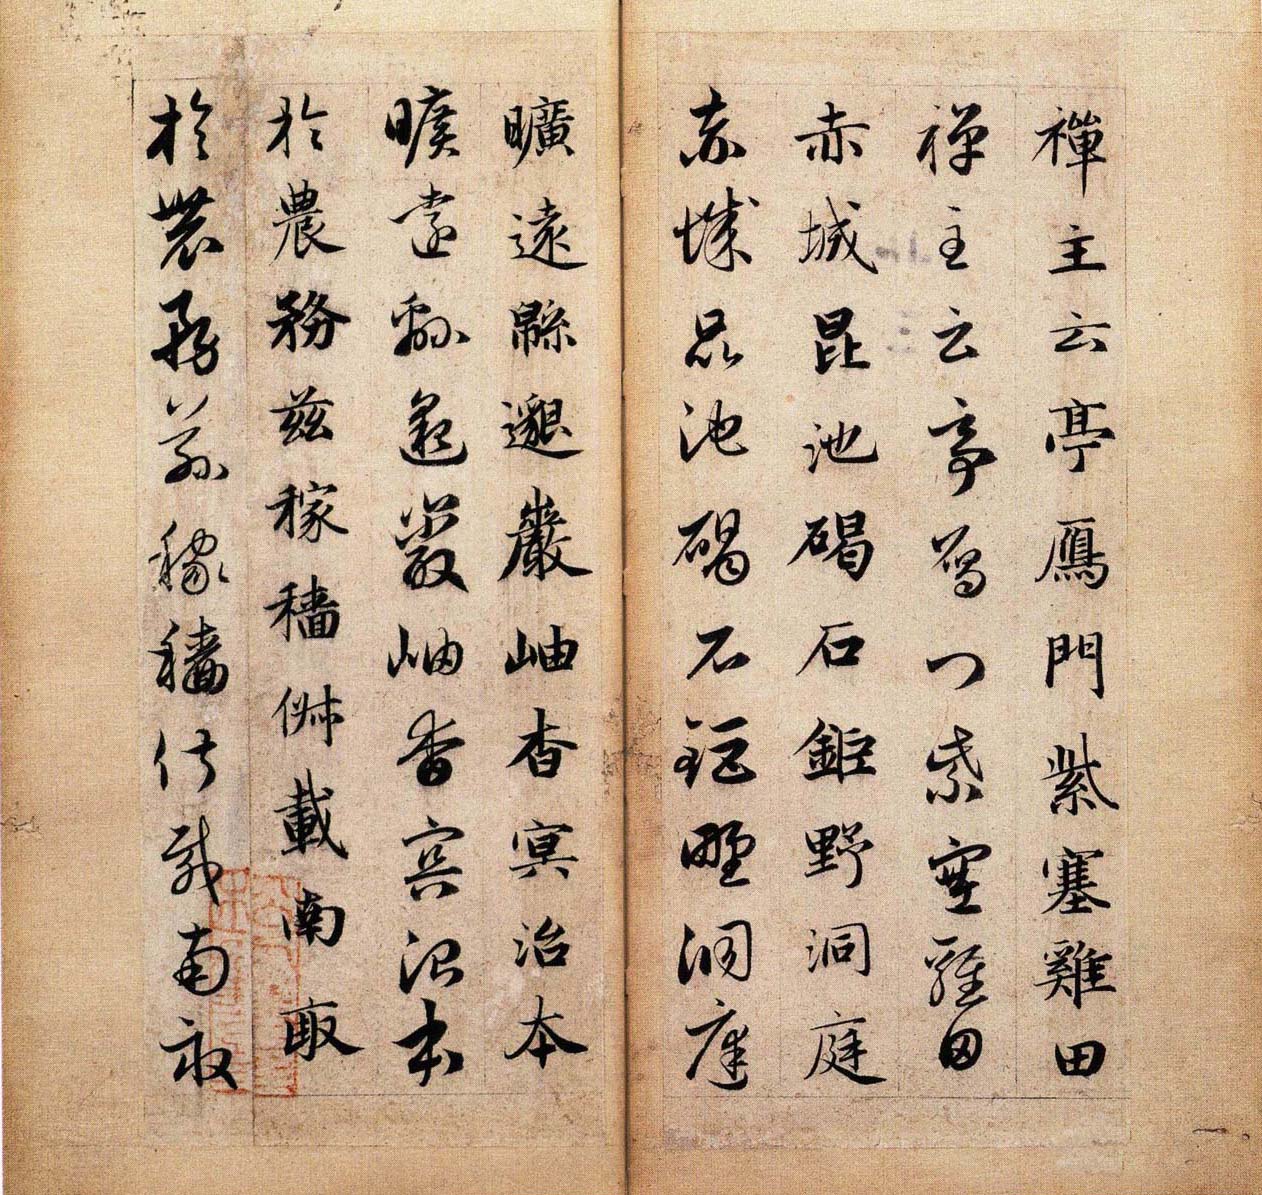 禪主云亭鴈門紫塞雞田
禅主云亭鴈门紫塞雞田
赤城昆池碣石鉅野洞庭
赤城昆池碣石鉅野洞庭
曠遠緜邈巖岫杳冥治本
曠遠緜邈巖岫杳冥治本
於農務兹稼穡俶載南畝
於農務兹稼穡俶載南畝